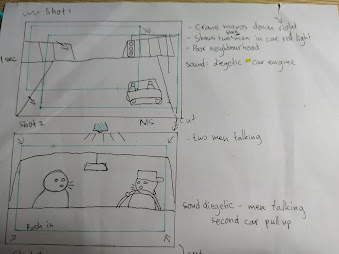 Shot 1
- Crane moves down right
- Shows two men in car red light
- Poor neighbourhood
1 sec
sound: diegetic - car engine
Shot 2
MS
cut
- two men talking
soud diegetic - men talking
second car pull up
Push in